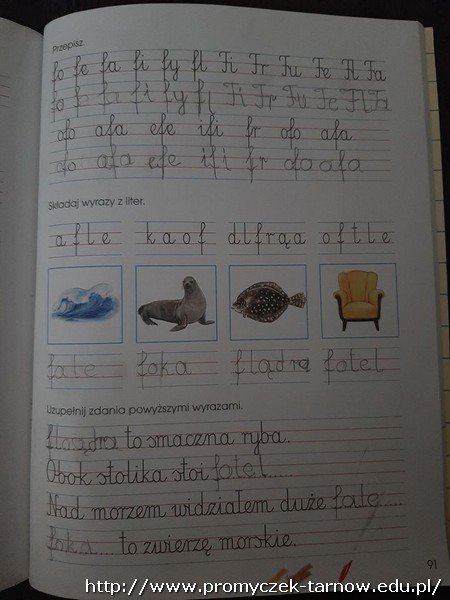 Przepisz.
fo fe fa fi fy fl Fi Fr Fu Fe Fl Fa
fo fe fa fi fy fl Fi Fr Fu Fe Fl Fa
ofo afa efe ifi fr ofo afa
ofo afa efe ifi fr ofo afa
Składaj wyrazy z liter.
a f l e k a o f d l f r ą a o f t l e
fale foka flądra fotel
Uzupełnij zdania powyższymi wyrazami.
flądra to smaczna ryba.
Obok stolika stoi fotel.....
Nad morzem widziałem duże fale.....
foka.... to zwierzę morskie.
91
http://www.promyczek-tarnow.edu.pl/